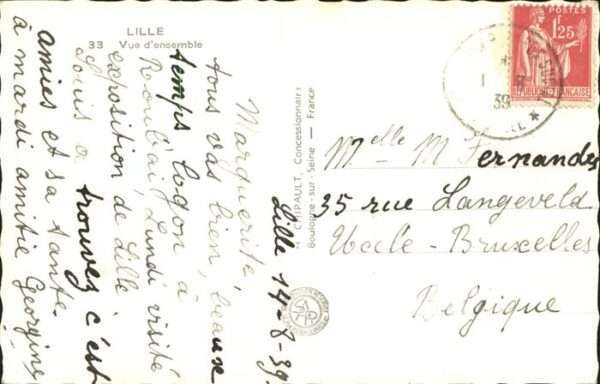 LILLE
33 Vue d'ensemble
POSTES
1.25
REPUBLIQUE FRANÇAISE
39
CHIPAULT, Concessionnaire
Boulogne-sur-Seine — France
Lille 14-8-39
Marguerite,
tous vas bien, beause
temps logon à
Roubai, Lundi visité
exposition de Lille
Suis a trouvez c'est
amies et sa tante.
à mardi amitié Georgine
Melle M Fernandes
35 rue Langeveld
Uccle-Bruxelles
Belgique